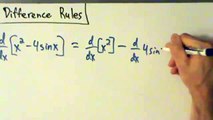 Difference Rules
d/dx [x² - 4sinx] = d/dx [x²] - d/dx 4sin